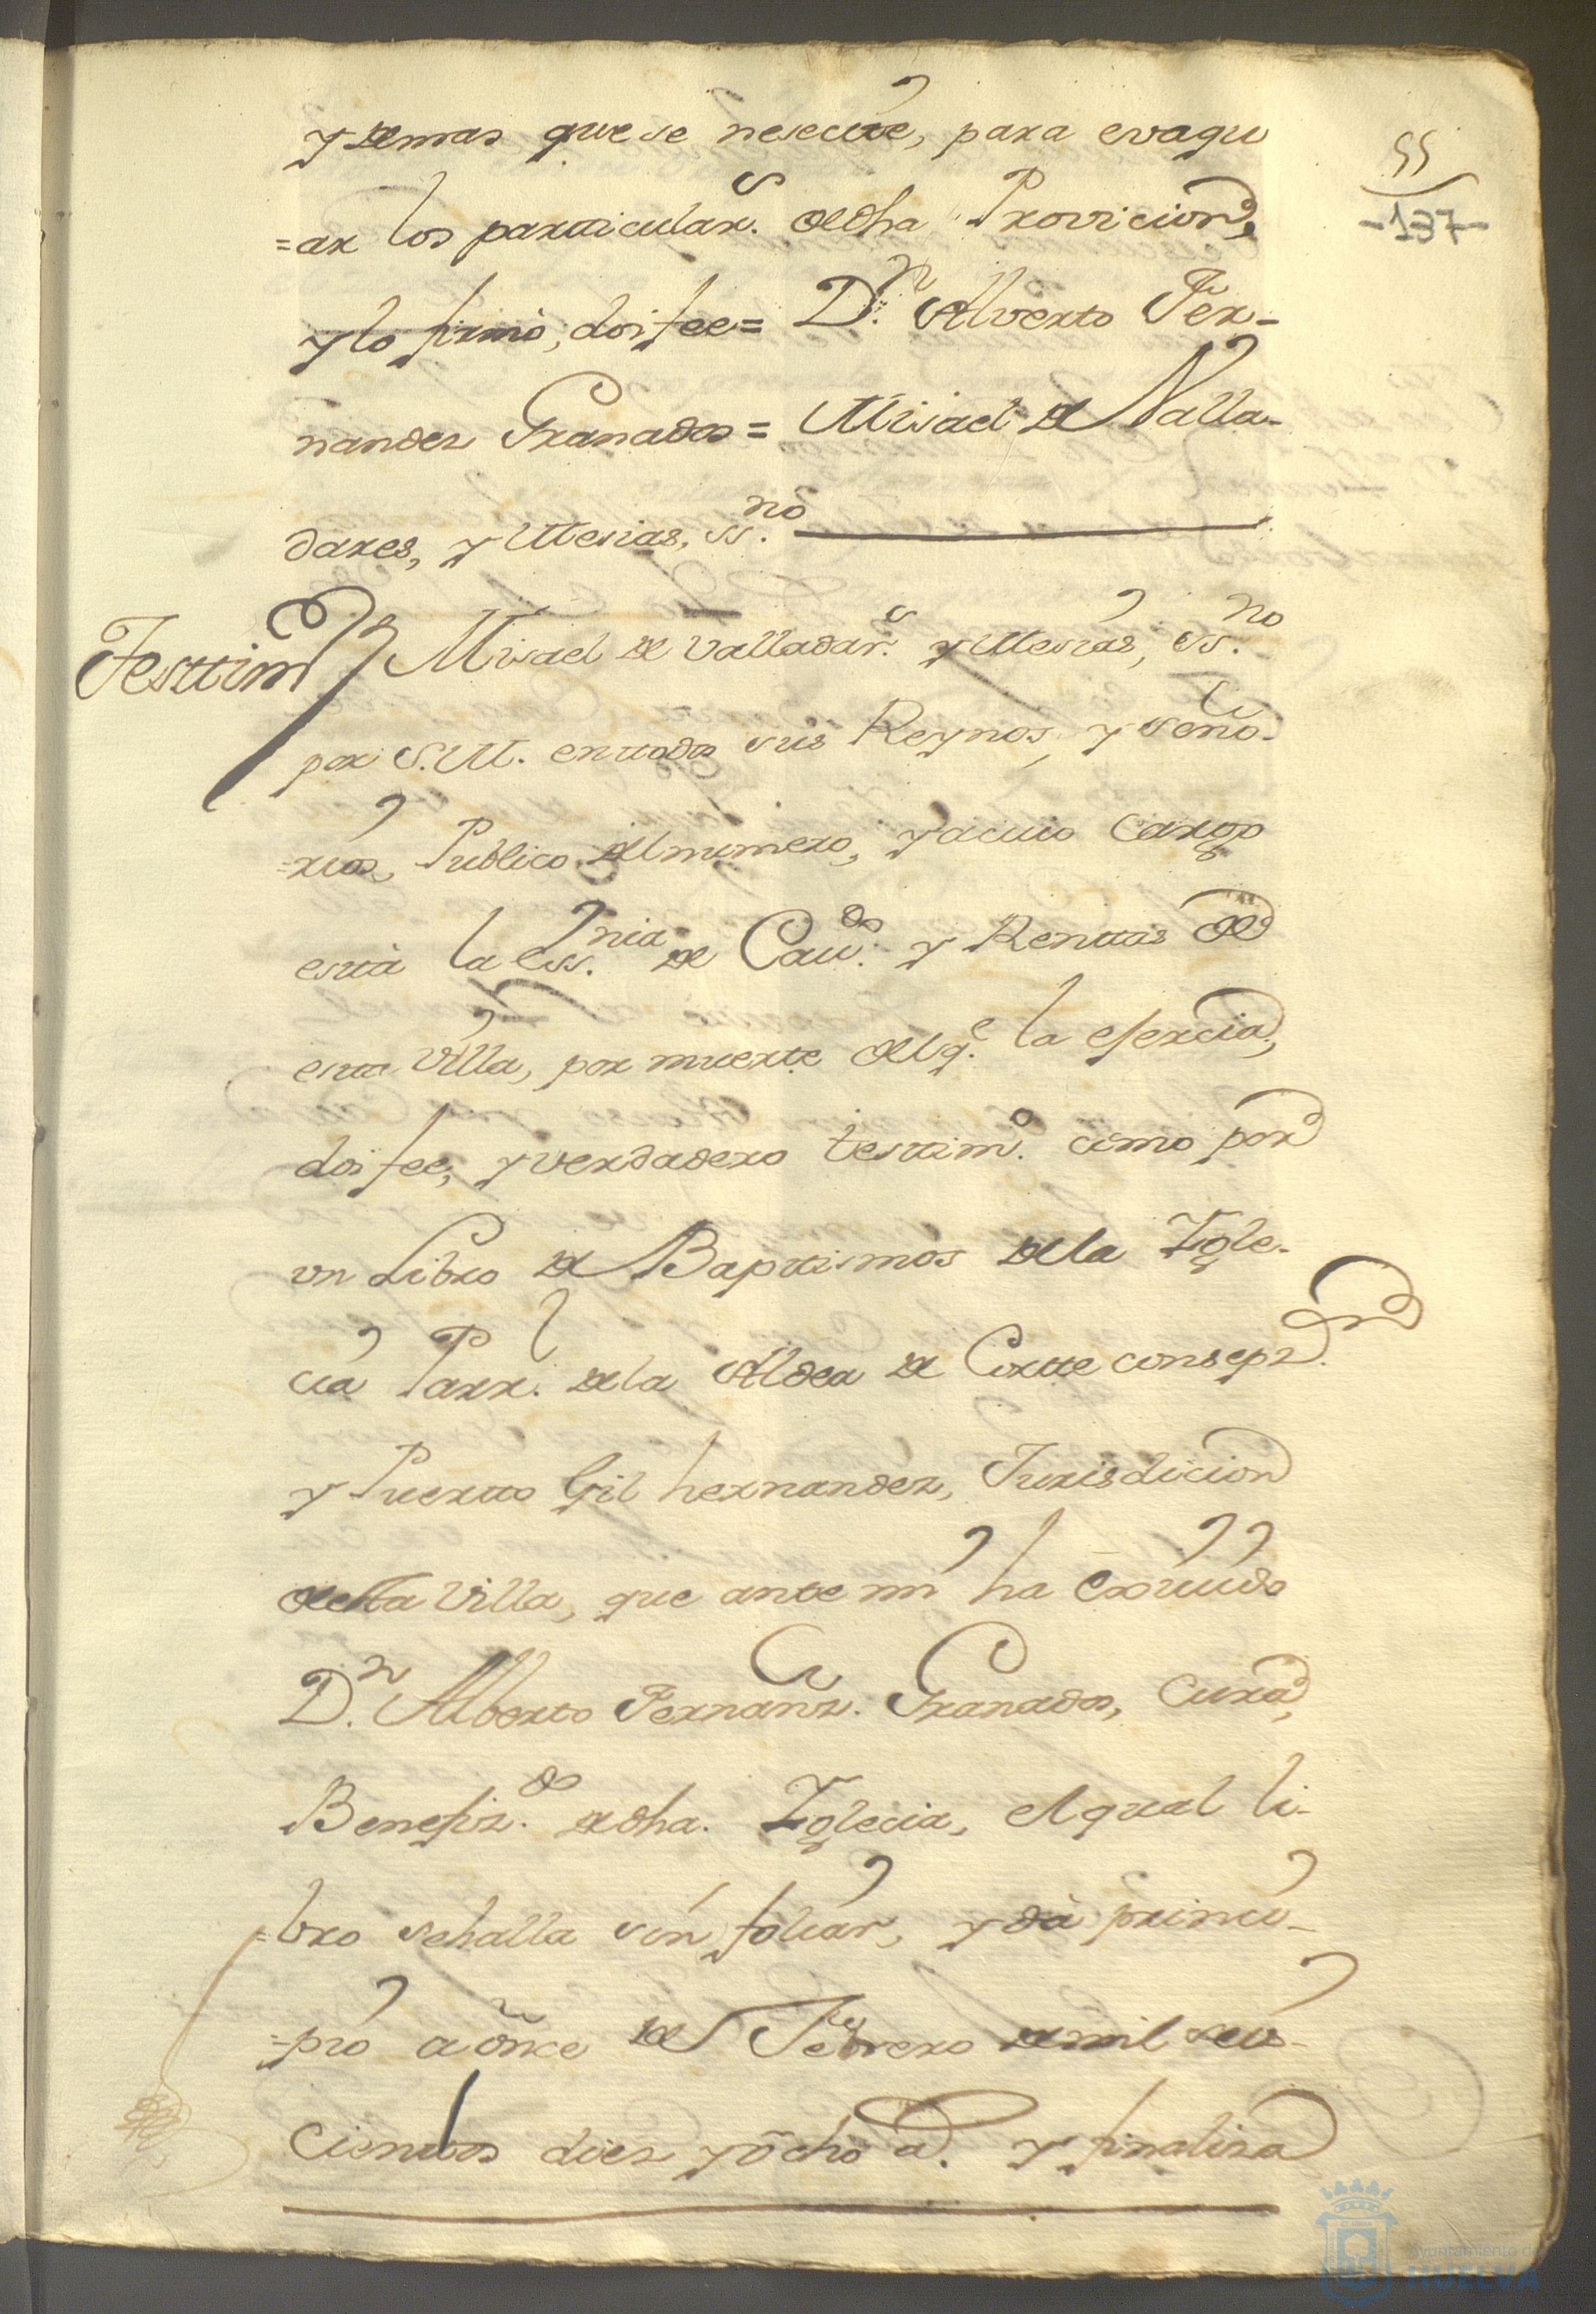 55
-137-
y demas que se nesecite, para evaqu
=ar los particular.s de dha Provicion,
y lo firmó, doi fee= D.n Alverto Fer-
nandez Granados= Misael de Valla-
dares, y Mesias, ss.no
Testtim.o Misael de Valladar.s y Mesias, ss.no
por S.M. en ttodos sus Reynos, y Seño-
=rios, Publico del numero, y a cuio cargo
estta la Ess.nia de Cav.do y Renttas de
estta Villa, por muerte del q.e la ejercia,
doi fee, y verdadero testtim.o como por
un Libro de Bapttismos de la Igle-
cia Parr.l de la Aldea de Cortte consepz.on
y Puertto Gil hernandez, Jurisdicion
de esta Villa, que ante mi ha exivido
D.n Alberto Fernañz. Granados, Cura,
Benefiz.do de dha. Iglecia, el qual li-
=bro se halla sin foliar, y dá princi-
=pio a onse de Febrero de mil seis-
cienttos diez y ocho a.s y finaliza
Ayuntamiento de
HUELVA